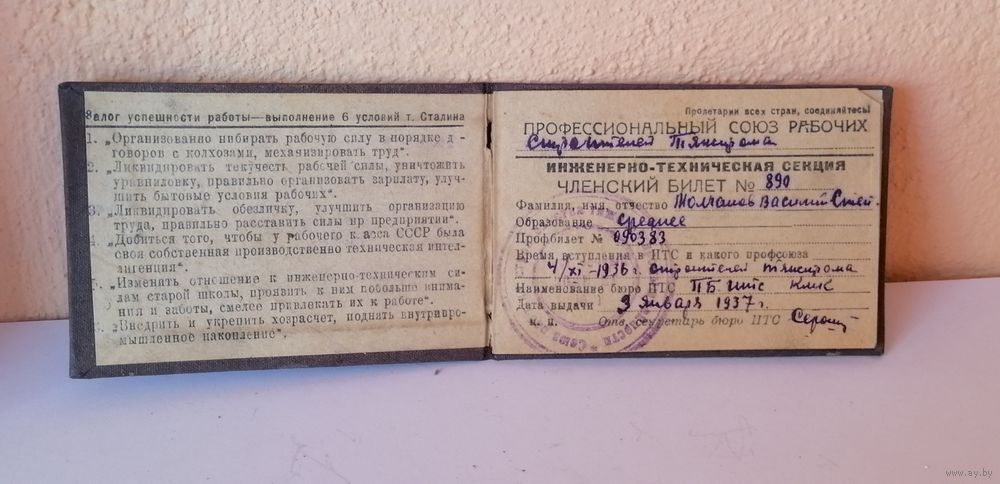 Залог успешности работы—выполнение 6 условий т. Сталина
1. „Организованно нибирать рабочую силу в порядке д -
говоров с колхозами, механизировать труд“.
2. „Ликвидировать текучесть рабочей силы, уничтожить
уравниловку, правильно организовать зарплату, улуч-
шить бытовые условия рабочих“.
3. „Ликвидировать обезличку, улучшить организацию
труда, правильно расставить силы нр предприятии“.
4. „Добиться того, чтобы у рабочего к асса СССР была
своя собственная производственно техническая интел-
лигенция“.
5. „Изменить отношение к инженерно-техническим си-
лам старой школы, проявить к ним побольше внима-
ния и заботы, смелее привлекать их к работе“.
6. „Внедрить и укрепить хозрасчет, поднять внутрипро-
мышленное накопление“.
Пролетарии всех стран, соединяйтесь!
ПРОФЕССИОНАЛЬНЫЙ СОЮЗ РАБОЧИХ
Строителей Тяжпрома
ИНЖЕНЕРНО-ТЕХНИЧЕСКАЯ СЕКЦИЯ
ЧЛЕНСКИЙ БИЛЕТ № 890
Фамилия, имя, отчество Молчанов Василий
Образование Среднее
Профбилет № 090383
Время вступления в ИТС и какого профсоюза
4/XI-1936 г. строителей тяжпрома
Наименование бюро ИТС ПБ ИТС
Дата выдачи 9 января 1937 г.
м. п. Отв. секретарь бюро ИТС
www.ay.by